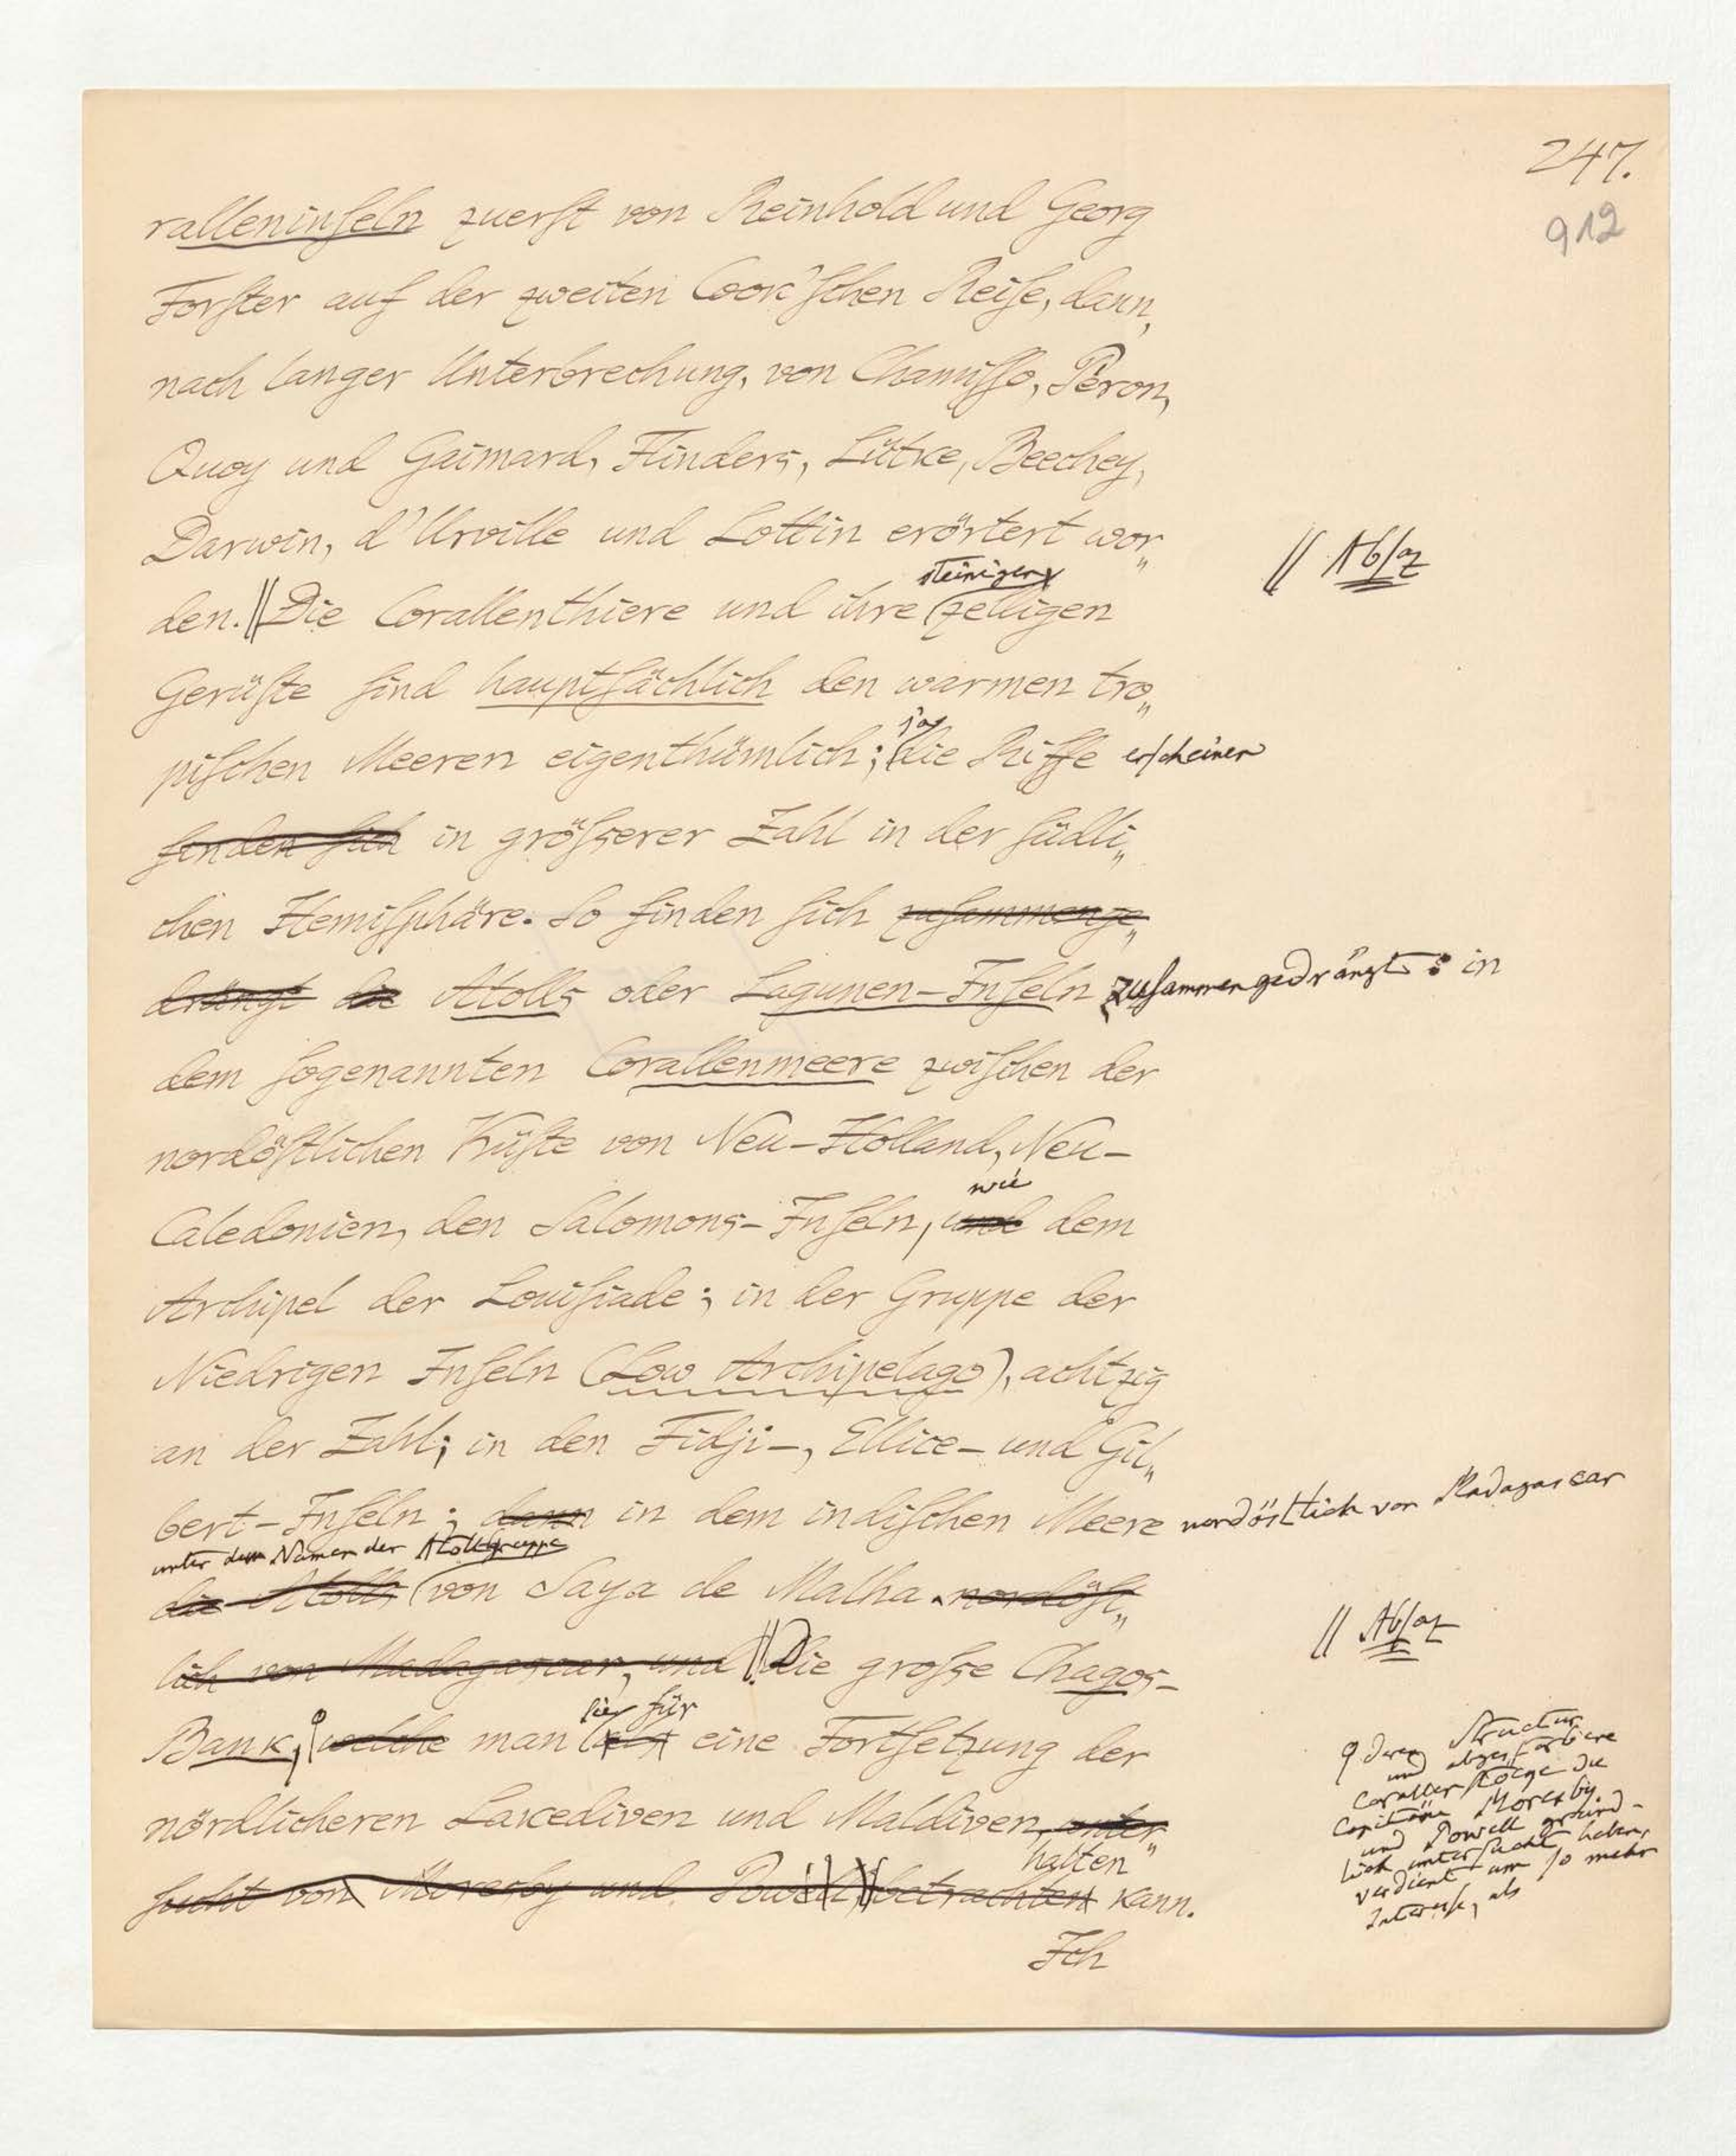 247.
912
ralleninſeln zuerſt von Reinhold und Georg
Forſter auf der zweiten Cook'ſchen Reiſe, dann,
nach langer Unterbrechung, von Chamiſſo, Péron,
Quoy und Gaimard, Flinders, Lütke, Beechey,
Darwin, d'Urville und Lottin erörtert wor„
// Abſaz
steinigen
den. // Die Corallenthiere und ihre zelligen
Gerüſte ſind hauptſächlich den warmen tro„
ja
piſchen Meeren eigenthümlich; die Riffe erſcheinen
finden ſich in gröſserer Zahl in der ſüdli„
chen Hemiſphäre. So finden ſich zuſammenge„
drängt die Atolls oder Lagunen-Inſeln zuſammengedrängt: in
dem ſogenannten Corallenmeere zwiſchen der
nordöſtlichen Küſte von Neu-Holland, Neu-
wie
Caledonien, den Salomons-Inſeln, und dem
Archipel der Louiſiade; in der Gruppe der
Niedrigen Inſeln (Low Archipelago), achtzig
an der Zahl; in den Fidji-, Ellice- und Gil„
bert-Inſeln; dann in dem indiſchen Meere nordöstlich von Madagascar
unter dem Namen der Atollgruppe
die Atolls von Saya de Malha. nordöſt„
// Abſaz
lich von Madagascar, und // Die groſse Chagos-
ſie für
Bank, welche man als eine Fortſetzung der
nördlicheren Lakediven und Maldiven, unter„
halten
ſucht von Moresby und Powell, betrachten kann.
Ich
deren Structur
und abgeſtorbene
Corallenſtöcke die
Capitäne Moresby
und Powell gründ-
lich unterſucht haben,
verdient um ſo mehr
Intereſſe, als